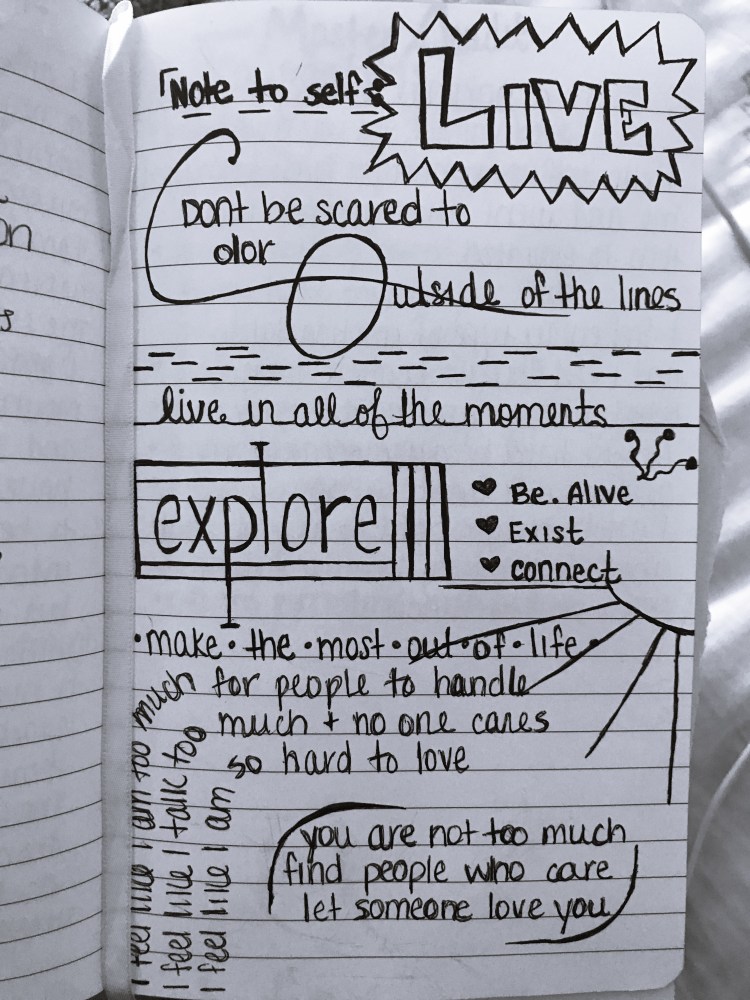 Note to self:
LIVE
Dont be scared to
Color
Outside of the lines
live in all of the moments
explore
Be. Alive
Exist
connect
•make•the•most•out•of•life•
I feel like I am too much for people to handle
I feel like I talk too much + no one cares
I feel like I am so hard to love
you are not too much
find people who care
let someone love you